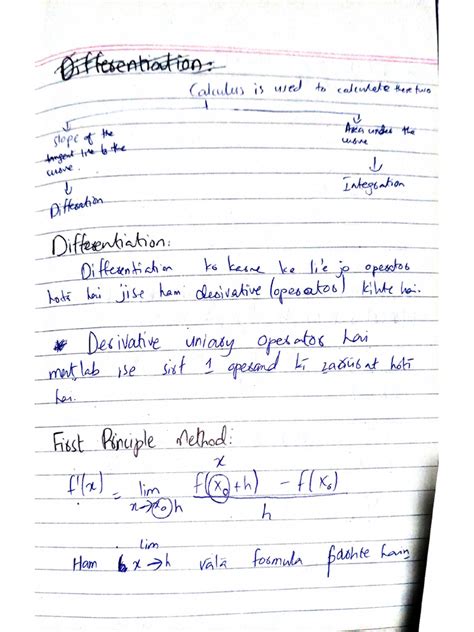 Differentiation:
Calculus is used to calculate these two
slope of the
tangent line to the
curve.
Area under the
curve
Diffeation
Integration
Differentiation:
Differentiation ko karne ke lie jo operator
hota hai jise ham derivative (operator) kihte hai.
* Derivative uniary operator hai
matlab ise sirf 1 operand ki zarurat hoti
hai.
First Principle Method:
x
f'(x) = lim x→x₀h f(x₀+h) - f(x₀) / h
lim
Ham x→h vala formula padhte hain